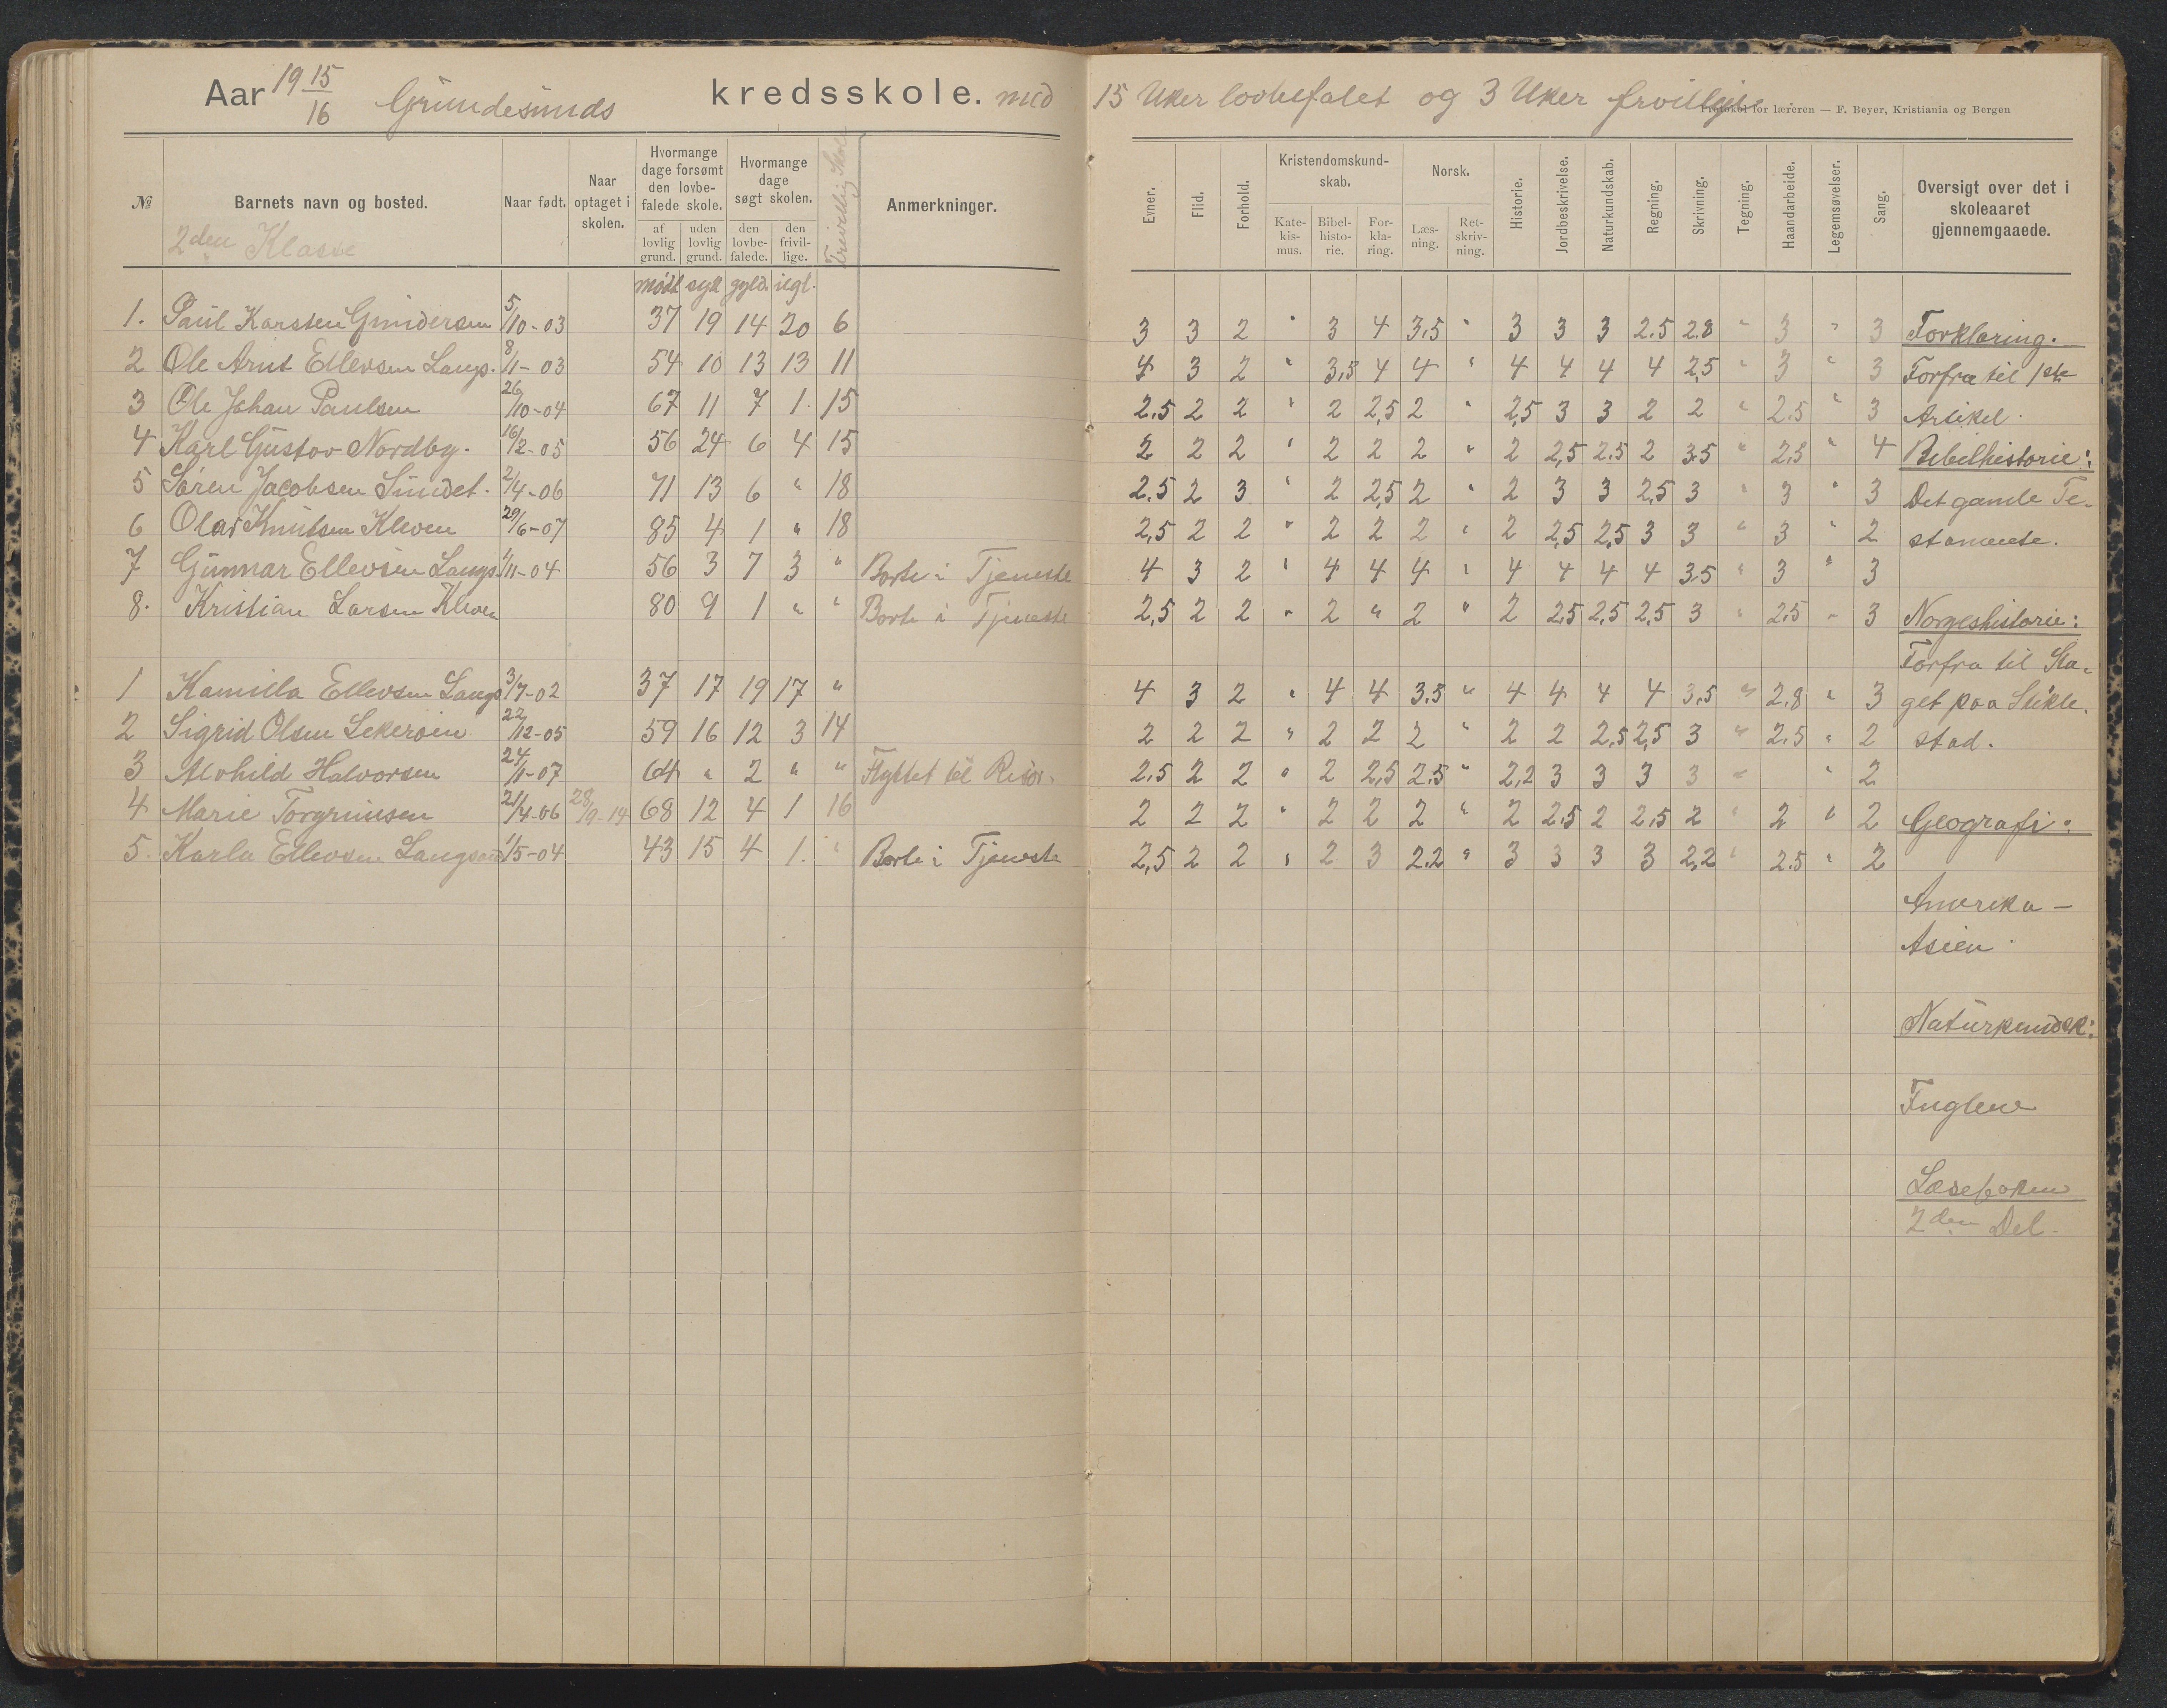 Aar 19 15/16 Grundesunds kredsskole. med 15 Uker lovbefalet og 3 Uker frvillige.
Protokol for læreren — F. Beyer, Kristiania og Bergen
№ Barnets navn og bosted. Naar født. Naar optaget i skolen. Hvormange dage forsømt den lovbefalede skole. Hvormange dage søgt skolen. Frivillig Skole Anmerkninger. Evner. Flid. Forhold. Kristendomskundskab. Norsk. Historie. Jordbeskrivelse. Naturkundskab. Regning. Skrivning. Tegning. Haandarbeide. Legemsøvelser. Sang. Oversigt over det i skoleaaret gjennemgaaede.
af lovlig grund. uden lovlig grund. den lovbefalede. den frivillige. Katekismus. Bibelhistorie. Forklaring. Læsning. Retskrivning.
2den Klasse
mødt syk gyld. ugl.
1. Paul Karsten Gundersen 5/10-03 37 19 14 20 6 3 3 2 " 3 4 3,5 " 3 3 3 2.5 2.8 " 3 " 3 Forklaring.
2 Ole Arnt Ellevsen Langs. 8/1-03 54 10 13 13 11 4 3 2 " 3,5 4 4 " 4 4 4 4 2,5 " 3 " 3 Forfra til 1ste
3 Ole Johan Paulsen 26/10-04 67 11 7 1. 15 2.5 2 2 " 2 2,5 2 " 2,5 3 3 2 2 " 2.5 " 3 Artikel.
4 Karl Gustav Nordby. 16/2-05 56 24 6 4 15 2 2 2 " 2 2 2 " 2 2,5 2.5 2 3.5 " 2,5 " 4 Bibelhistorie:
5 Søren Jacobsen Sundet. 2/4-06 71 13 6 " 18 2.5 2 3 " 2 2,5 2 " 2 3 3 2,5 3 " 3 " 3 Det gamle Te-
6 Olav Knutsen Kleven 29/6-07 85 4 1 " 18 2,5 2 2 " 2 2 2 " 2 2,5 2,5 3 3 " 3 " 2 stamente.
7 Gunnar Ellevsen Langs. 1/11-04 56 3 7 3 " Borte i Tjeneste 4 3 2 " 4 4 4 " 4 4 4 4 3.5 " 3 " 3
8. Kristian Larsen Kleven 80 9 1 " " Borte i Tjeneste 2,5 2 2 " 2 " 2 " 2 2,5 2,5 2,5 3 " 2,5 " 3 Norgeshistorie:
Forfra til Sla-
1 Kamilla Ellevsen Langs 3/7-02 37 17 19 17 " 4 3 2 " 4 4 3.5 " 4 4 4 4 3,5 " 2.8 " 3 get paa Stikle-
2 Sigrid Olsen Lekerøien 22/12-05 59 16 12 3 14 2 2 2 " 2 2 2 " 2 2 2,5 2,5 3 " 2.5 " 2 stad.
3 Alvhild Halvorsen 24/1-07 64 " 2 " " Flyttet til Risør. 2.5 2 2 " 2 2,5 2.5 " 2,2 3 3 3 3 " " 2
4 Marie Torgrimsen 21/4-06 28/9-14 68 12 4 1 16 2 2 2 " 2 2 2 " 2 2.5 2 2,5 2 " 2 " 2 Geografi:
5. Karla Ellevsen Langsand 1/5-04 43 15 4 1. " Borte i Tjeneste 2,5 2 2 " 2 3 2.2 " 3 3 3 3 2,2 " 2.5 " 2
Amerika -
Asien
Naturkundsk:
Fuglene
Læseboken
2den Del.